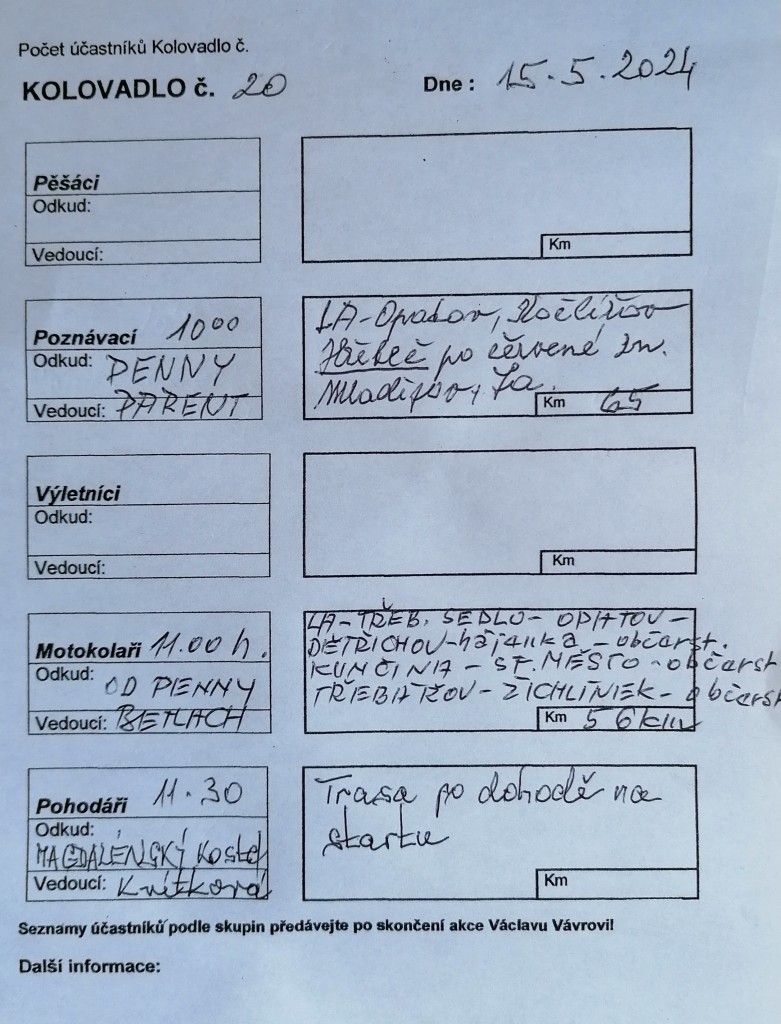 Počet účastníků Kolovadlo č.
KOLOVADLO č. 20 Dne : 15.5.2024
Pěšáci
Odkud:
Vedoucí:
Km
Poznávací 10⁰⁰
Odkud: PENNY
Vedoucí: PAŘENT
LA-Opatov, Koclířov
Hřebeč po červené zn.
Mladějov, La.
Km 65
Výletníci
Odkud:
Vedoucí:
Km
Motokolaři 11.00 h.
Odkud: OD PENNY
Vedoucí: BETLACH
LA-TŘEB. SEDLO- OPATOV-
DĚTŘICHOV-hájanka - občarst.
KUNČINA - ST. MĚSTO - občarst
TŘEBAŘOV- ŽICHLÍNEK- občarst
Km 56 km
Pohodáři 11.30
Odkud:
MAGDALÉNSKÝ Kostel
Vedoucí: Kvítková
Trasa po dohodě na
startu
Km
Seznamy účastníků podle skupin předávejte po skončení akce Václavu Vávrovi!
Další informace: